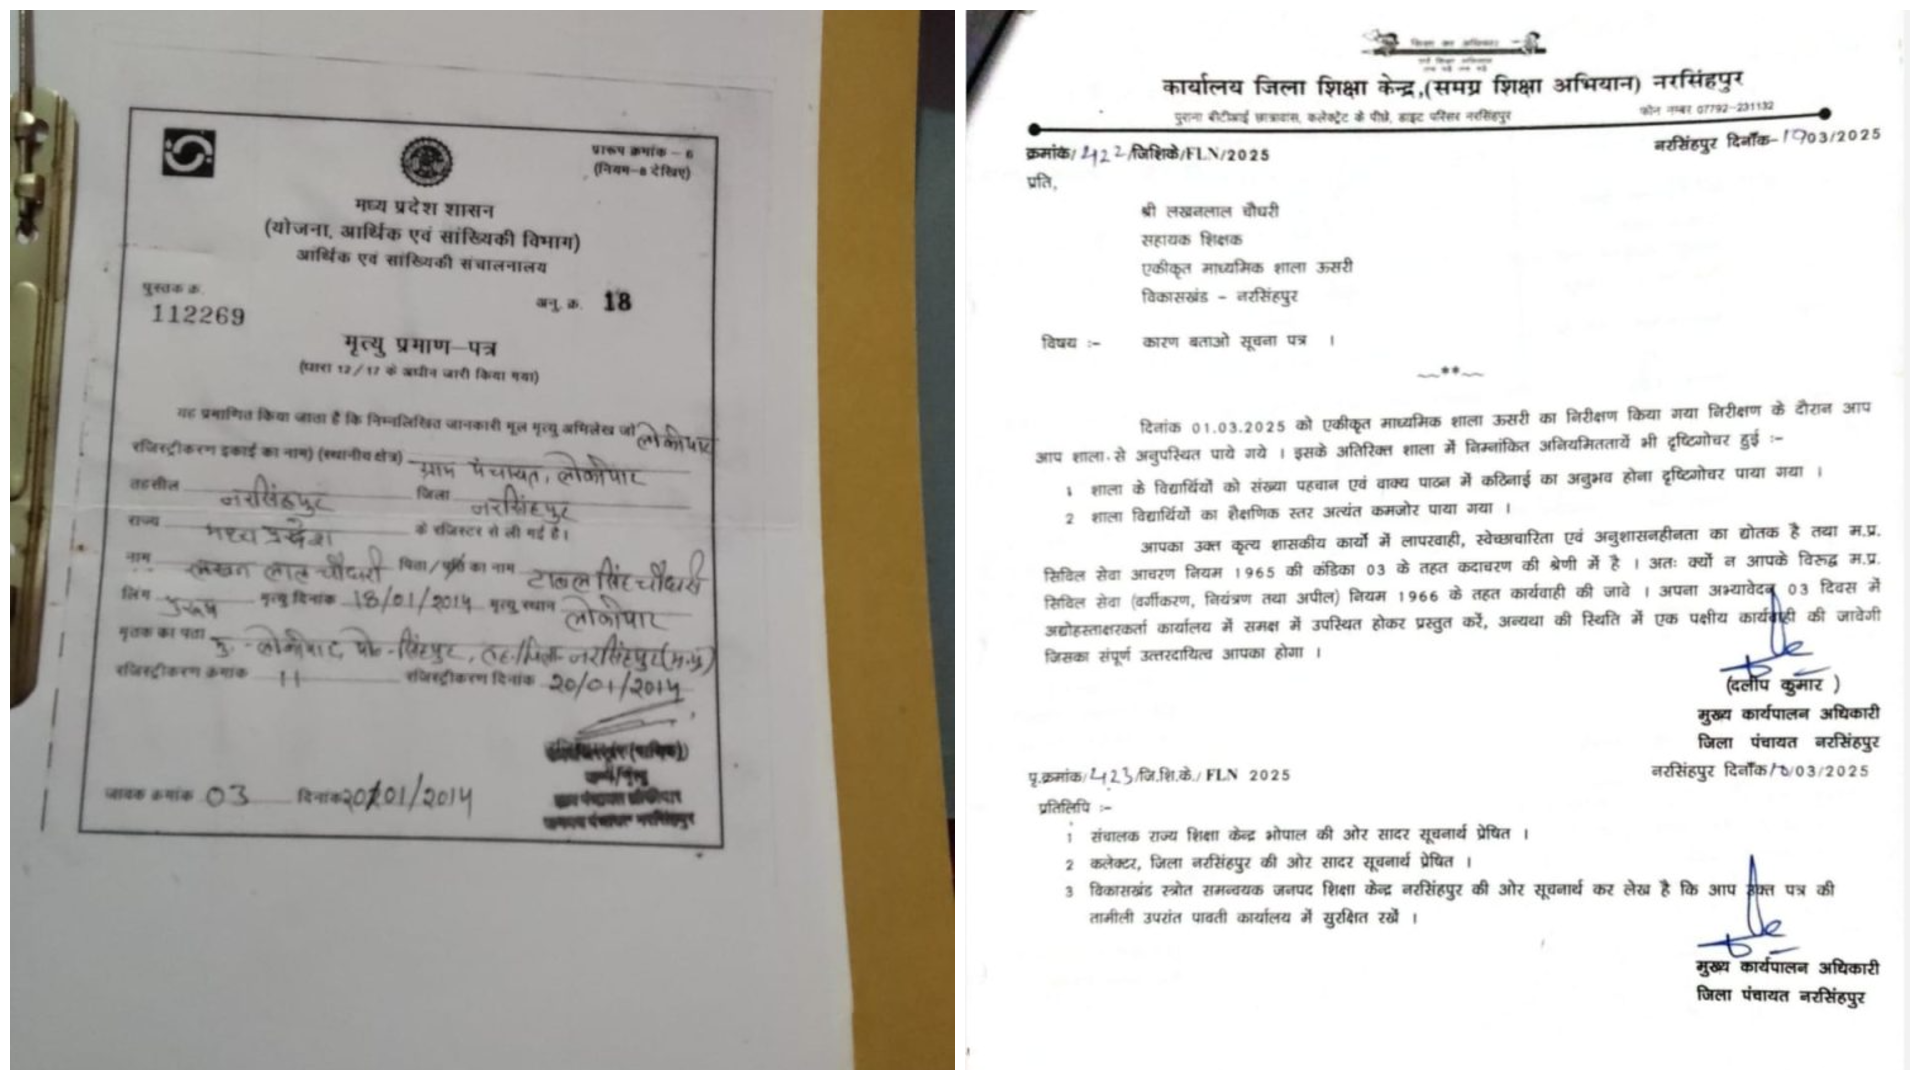 प्रारूप क्रमांक – 6
(नियम–8 देखिए)
मध्य प्रदेश शासन
(योजना, आर्थिक एवं सांख्यिकी विभाग)
आर्थिक एवं सांख्यिकी संचालनालय
पुस्तक क.
112269
अनु. क्र. 18
मृत्यु प्रमाण–पत्र
(धारा 12/17 के अधीन जारी किया गया)
यह प्रमाणित किया जाता है कि निम्नलिखित जानकारी मूल मृत्यु अभिलेख जो लोकीपार
रजिस्ट्रीकरण इकाई का नाम) (स्थानीय क्षेत्र) ग्राम पंचायत, लोकीपार
तहसील नरसिंहपुर जिला नरसिंहपुर
राज्य मध्य प्रदेश के रजिस्टर से ली गई है।
नाम लखन लाल चौधरी पिता/पति का नाम सिंह चौधरी
लिंग पुरूष मृत्यु दिनांक 18/01/2014 मृत्यु स्थान लोकीपार
मृतक का पता मु.-लोकीपार, पो.-सिंहपुर, तह./जिला-नरसिंहपुर(म.प्र)
रजिस्ट्रीकरण क्रमांक 11 रजिस्ट्रीकरण दिनांक 20/01/2014
जावक क्रमांक 03 दिनांक 20/01/2014
कार्यालय जिला शिक्षा केन्द्र,(समग्र शिक्षा अभियान) नरसिंहपुर
पुराना बीटीआई छात्रावास, कलेक्ट्रेट के पीछे, डाइट परिसर नरसिंहपुर
फोन नम्बर 07792-231132
क्रमांक/422/जिशिके/FLN/2025
नरसिंहपुर दिनाँक-1903/2025
प्रति,
श्री लखनलाल चौधरी
सहायक शिक्षक
एकीकृत माध्यमिक शाला ऊसरी
विकासखंड – नरसिंहपुर
विषय :– कारण बताओ सूचना पत्र ।
~~**~~
दिनांक 01.03.2025 को एकीकृत माध्यमिक शाला ऊसरी का निरीक्षण किया गया निरीक्षण के दौरान आप
आप शाला से अनुपस्थित पाये गये । इसके अतिरिक्त शाला में निम्नांकित अनियमिततायें भी दृष्टिगोचर हुई :–
1 शाला के विद्यार्थियों को संख्या पहचान एवं वाक्य पाठन में कठिनाई का अनुभव होना दृष्टिगोचर पाया गया ।
2 शाला विद्यार्थियों का शैक्षणिक स्तर अत्यंत कमजोर पाया गया ।
आपका उक्त कृत्य शासकीय कार्यो में लापरवाही, स्वेच्छाचारिता एवं अनुशासनहीनता का द्योतक है तथा म.प्र.
सिविल सेवा आचरण नियम 1965 की कंडिका 03 के तहत कदाचरण की श्रेणी में है । अतः क्यों न आपके विरूद्ध म.प्र.
सिविल सेवा (वर्गीकरण, नियंत्रण तथा अपील) नियम 1966 के तहत कार्यवाही की जावे । अपना अभ्यावेदन 03 दिवस में
अद्योहस्ताक्षरकर्ता कार्यालय में समक्ष में उपस्थित होकर प्रस्तुत करें, अन्यथा की स्थिति में एक पक्षीय कार्यवाही की जावेगी
जिसका संपूर्ण उत्तरदायित्व आपका होगा ।
(दलीप कुमार )
मुख्य कार्यपालन अधिकारी
जिला पंचायत नरसिंहपुर
पृ.क्रमांक/423/जि.शि.के./ FLN 2025
नरसिंहपुर दिनाँक/10/03/2025
प्रतिलिपि :–
1 संचालक राज्य शिक्षा केन्द्र भोपाल की ओर सादर सूचनार्थ प्रेषित ।
2 कलेक्टर, जिला नरसिंहपुर की ओर सादर सूचनार्थ प्रेषित ।
3 विकासखंड स्त्रोत समन्वयक जनपद शिक्षा केन्द्र नरसिंहपुर की ओर सूचनार्थ कर लेख है कि आप उक्त पत्र की
तामीली उपरांत पावती कार्यालय में सुरक्षित रखें ।
मुख्य कार्यपालन अधिकारी
जिला पंचायत नरसिंहपुर